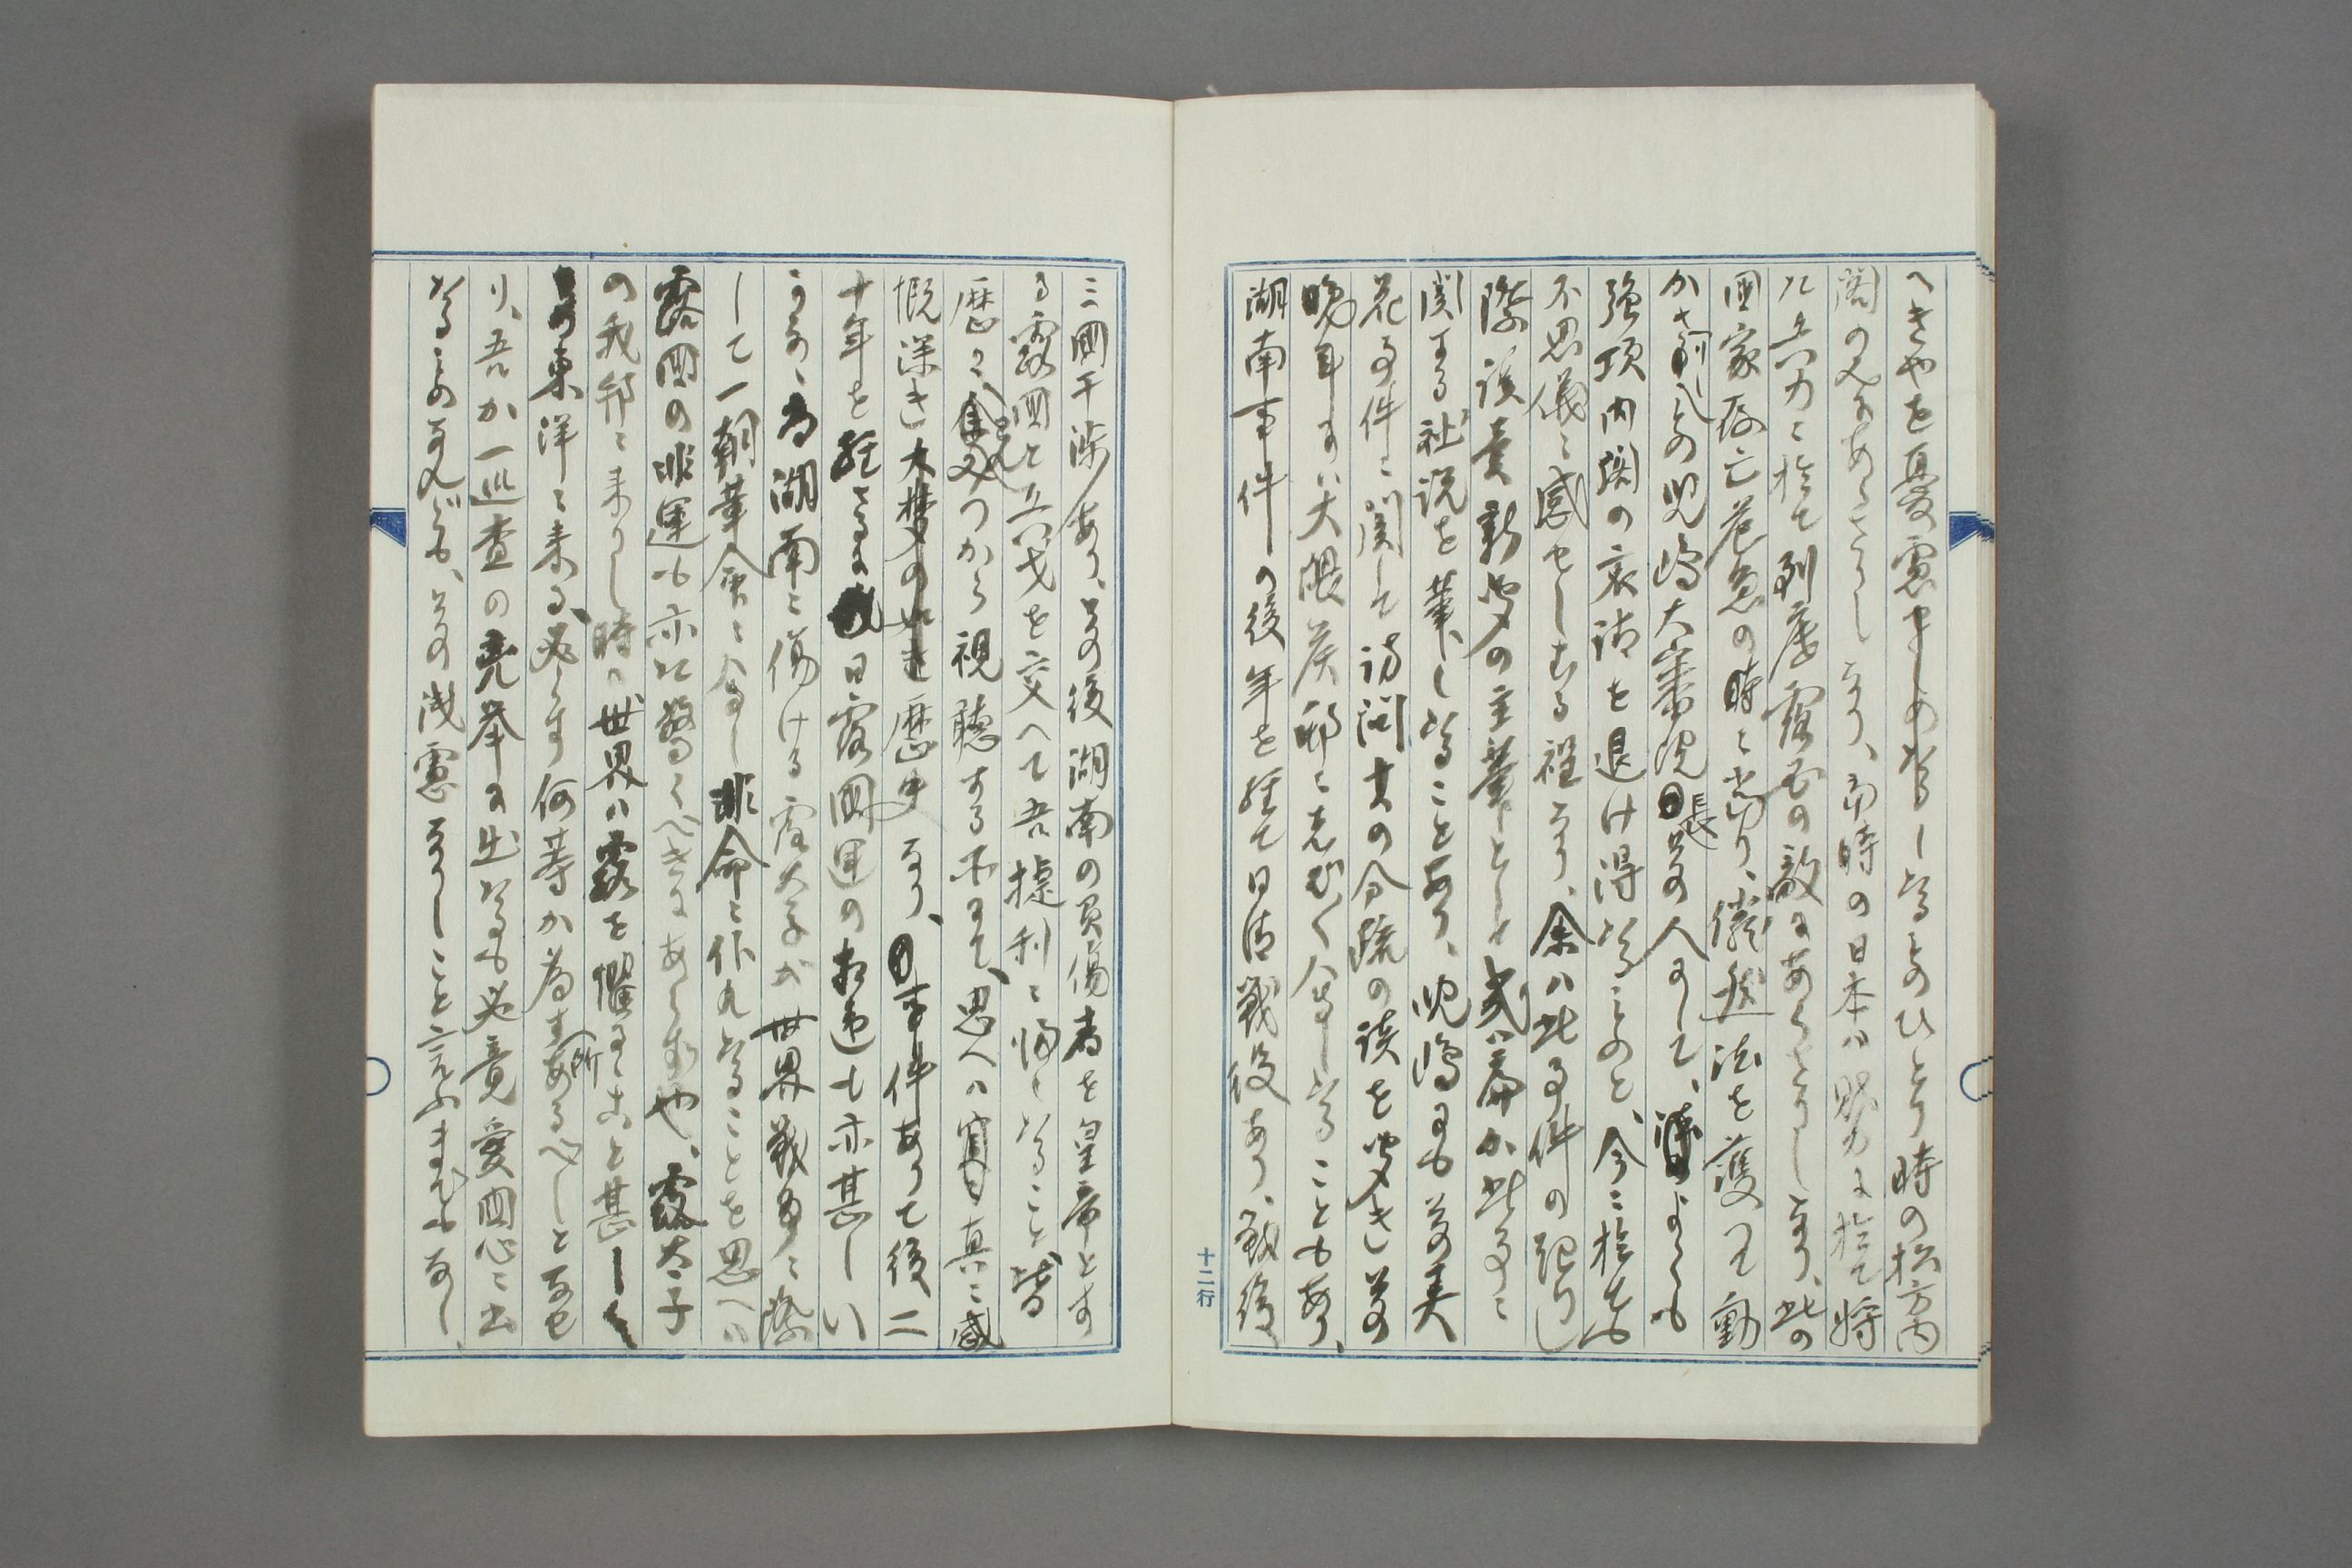 へきやを憂慮せしめたりしなるものひとり時の松方内
閣のみにあらさりしなり、当時の日本ハ財力に於て将
た兵力に於て到底露西の敵にあらさりしなり、此の
国家存亡危急の時に当り、儼然法を護つて動
かさりしの児嶋大審院長其の人にして、
強項内閣の哀請を退け得たるものと、今に於ても
不思儀に感せしむる程なり、余ハ此事件の起りし
際読売新聞の主筆として或ハ扁か此事に
関する社説を草したることあり、児嶋にも其の美
花事件に関して訪問其の分疏の談を聞き其の
晩年にハ大隈侯邸にもしば〱会したることもあり、
湖南事件の後年を経て日清戦役あり、戦後
十二行
三国干渉あり、其の後湖南の負傷者を皇帝とす
る露国と兵戈を交へて吾捷利に帰したること皆
歴々余のみつから視聴する所にして、思へハ真に感
慨深き大夢の如き歴史なり、事件ありて後二
十年を経さるに日露国運の相違も亦甚しい
かな、湖南に傷ける露太子が世界戦争に際
して一朝革命に会し非命に仆れたることを思へハ
露国の非運も亦た驚くべきにあらすや、露太子
の我邦に来りし時ハ世界ハ露を懼るること甚し
東洋に来る、必らす何等か為す所あるべしとなせ
り、吾か一巡査の兇挙に出たるも必竟愛国心に出
たるものなれども、其の浅慮なりしこと言ふまでもなし、